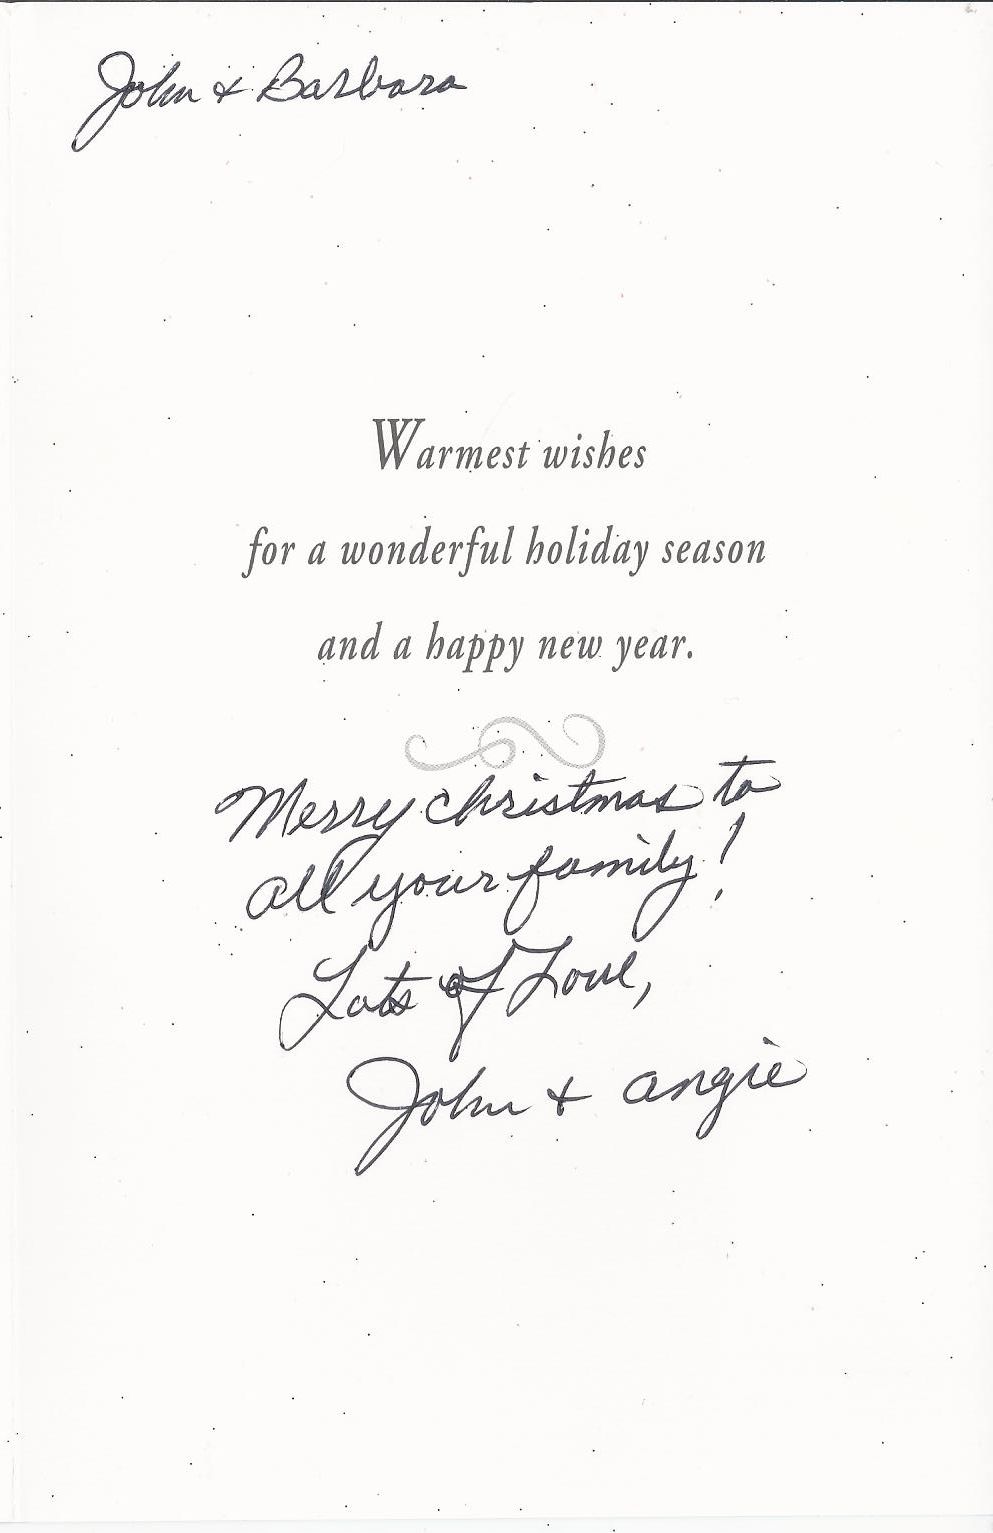 John + Barbara
Warmest wishes
for a wonderful holiday season
and a happy new year.
Merry Christmas to
all your family!
Lots of Love,
John + Angie